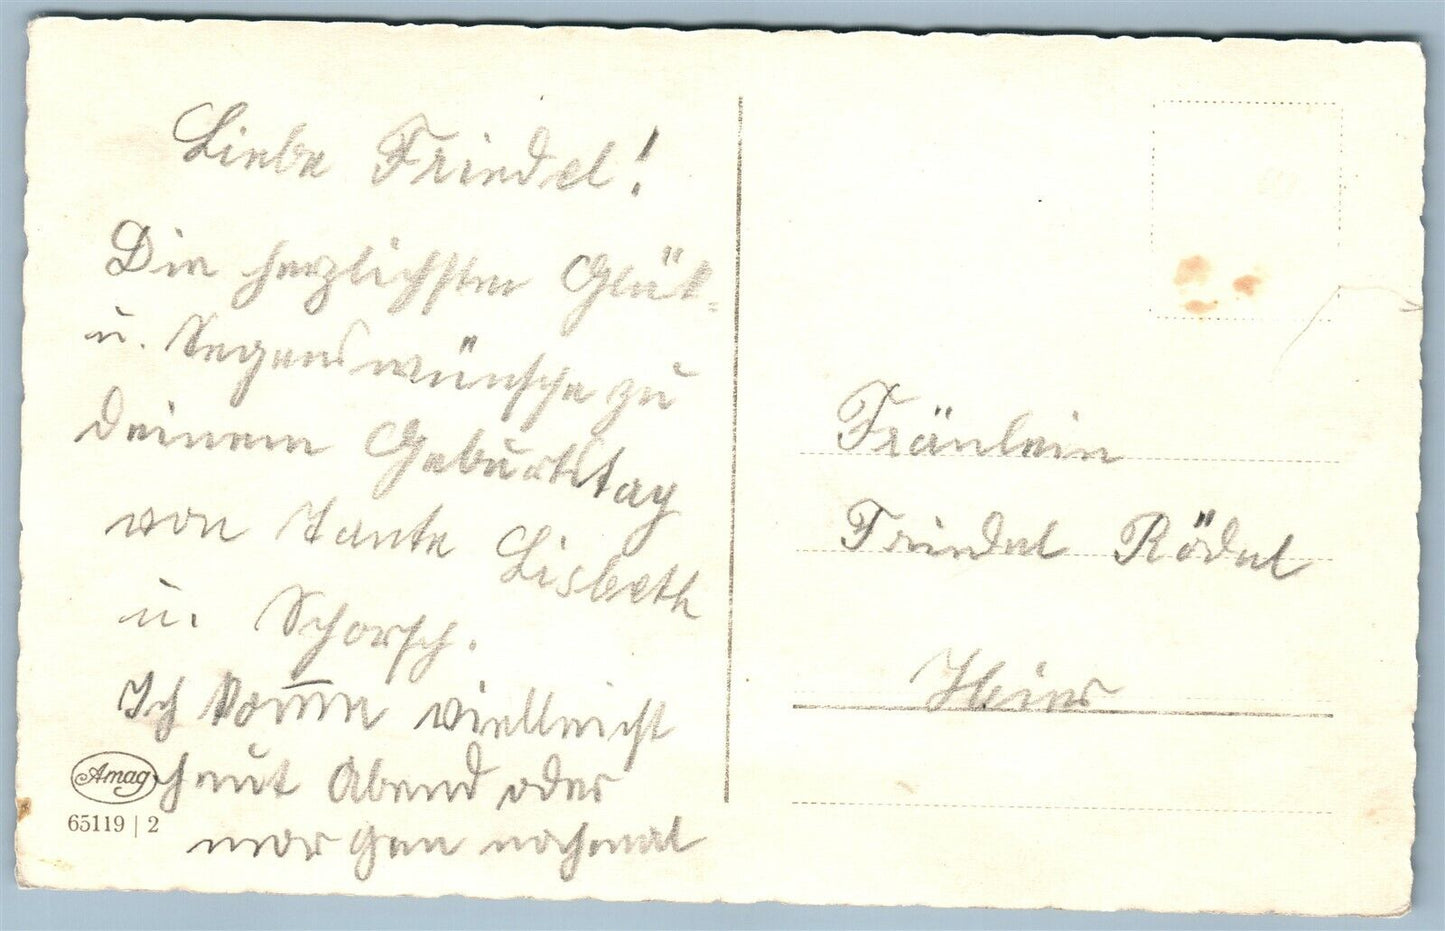 Liebe Friedel!
Die herzlichsten Glük-
u. Segenswünsche zu
deinem Geburtstag
von Tante Lisbeth
u. Schorsch.
Ich kom̅e vielleicht
heut Abend oder
morgen nochmal
Amag
65119 | 2
Fräulein
Friedel Rödel
Hier